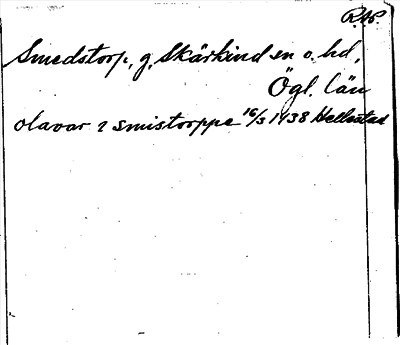 R.A.P.
Smedstorp, g. Skärkind sn o. hd,
Ögl. län
olavar i smistorppe 16/3 1438 Hellestad